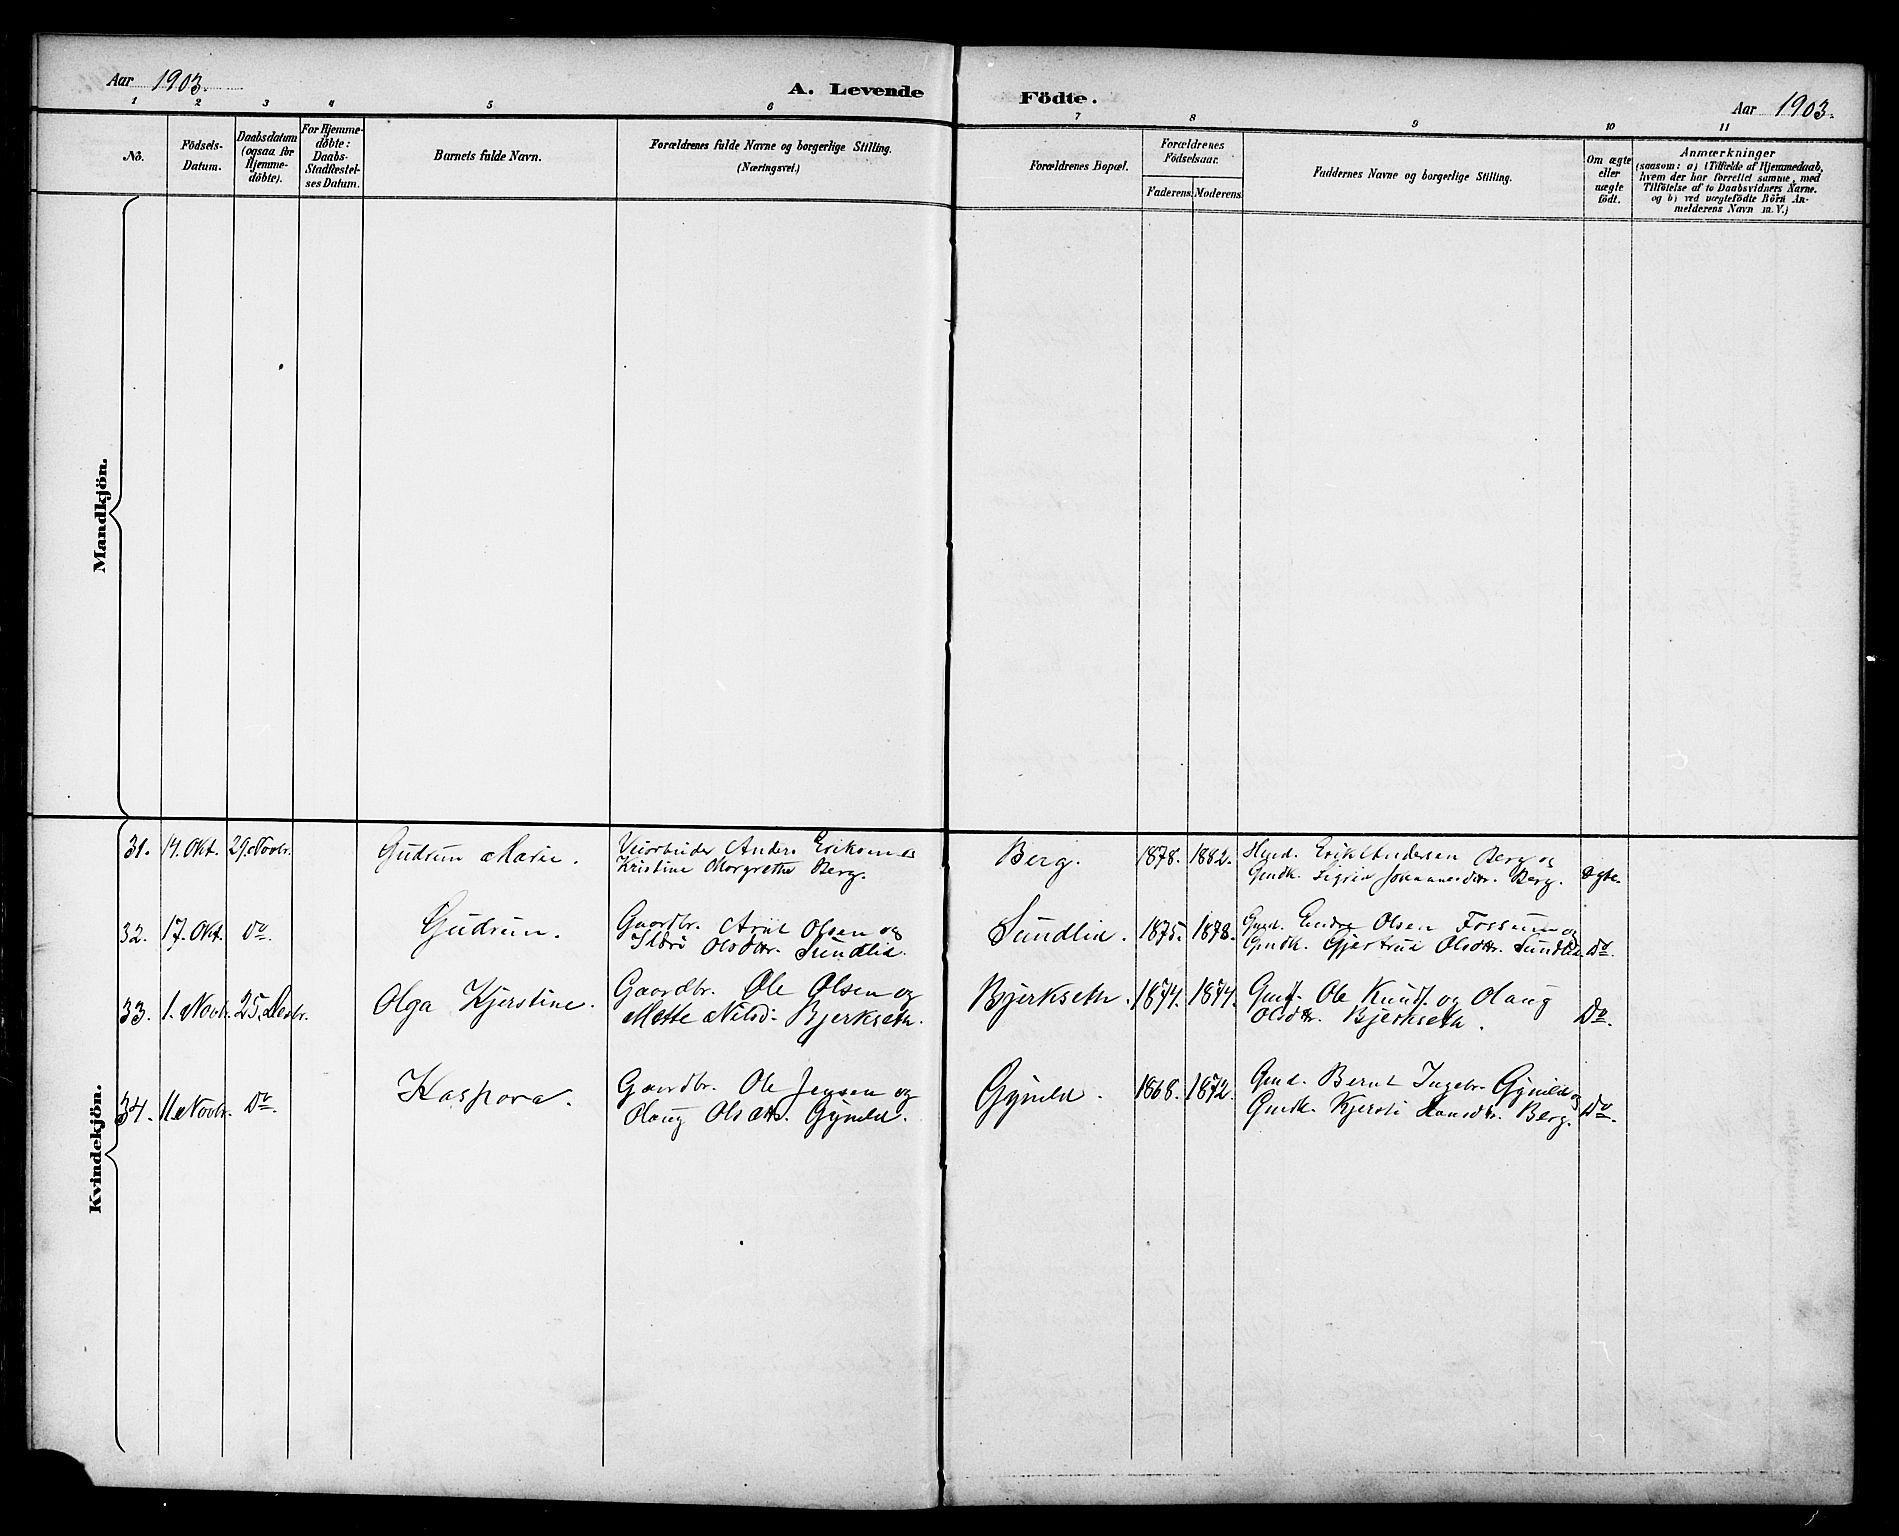 Aar 1903.
A. Levende Födte.
Aar 1903.
1 2 3 4 5 6 7 8 9 10 11
No.
Födsels-
Datum.
Daabsdatum
(ogsaa for
Hjemme-
döbte).
For Hjemme-
döbte:
Daabs-
Stadfæstel-
ses Datum.
Barnets fulde Navn.
Forældrenes fulde Navne og borgerlige Stilling.
(Næringsvei.)
Forældrenes Bopæl.
Forældrenes
Födselsaar.
Faderens. Moderens.
Faddernes Navne og borgerlige Stilling.
Om ægte
eller
uægte
födt.
Anmærkninger
(saasom: a) i Tilfælde af Hjemmedaab,
hvem der har forrettet samme, med
Tilföielse af to Daabsvidners Navne.
og b) ved uægtefödte Börn An-
melderens Navn m. V.)
Mandkjön.
Kvindekjön.
31. 14. Okt. 29. Novbr. Gudrun Marie.
Anders Eriksen og
Kristine Margrethe Berg.
Berg. 1878. 1882.
Erik Andersen Berg og
Gmdk. Sigrid Johannesdtr. Berg.
ægte.
32. 17. Okt. Do. Gudrun.
Gaardbr. Arnt Olsen og
Olsdtr. Sundlid.
Sundlid. 1875. 1878.
Gmd. Endre Olsen Fossum og
Gmdk. Gjertrud Olsdtr. Sundlid.
Do.
33. 1. Novbr. 25. Desbr. Olga Kjerstine.
Gaardbr. Ole Olsen og
Mette Nilsd. Bjerkseth.
Bjerkseth. 1874. 1874.
Gmdf. Ole Knuds. og Olaug
Olsdtr. Bjerkseth.
Do.
34. 11. Novbr. Do. Kaspara.
Gaardbr. Ole Jensen og
Olaug Olsdtr. Gynild.
Gynild. 1868. 1872.
Gmd. Bernt Ingebr. Gynild og
Gmdk. Kjersti Hansdtr. Berg.
Do.